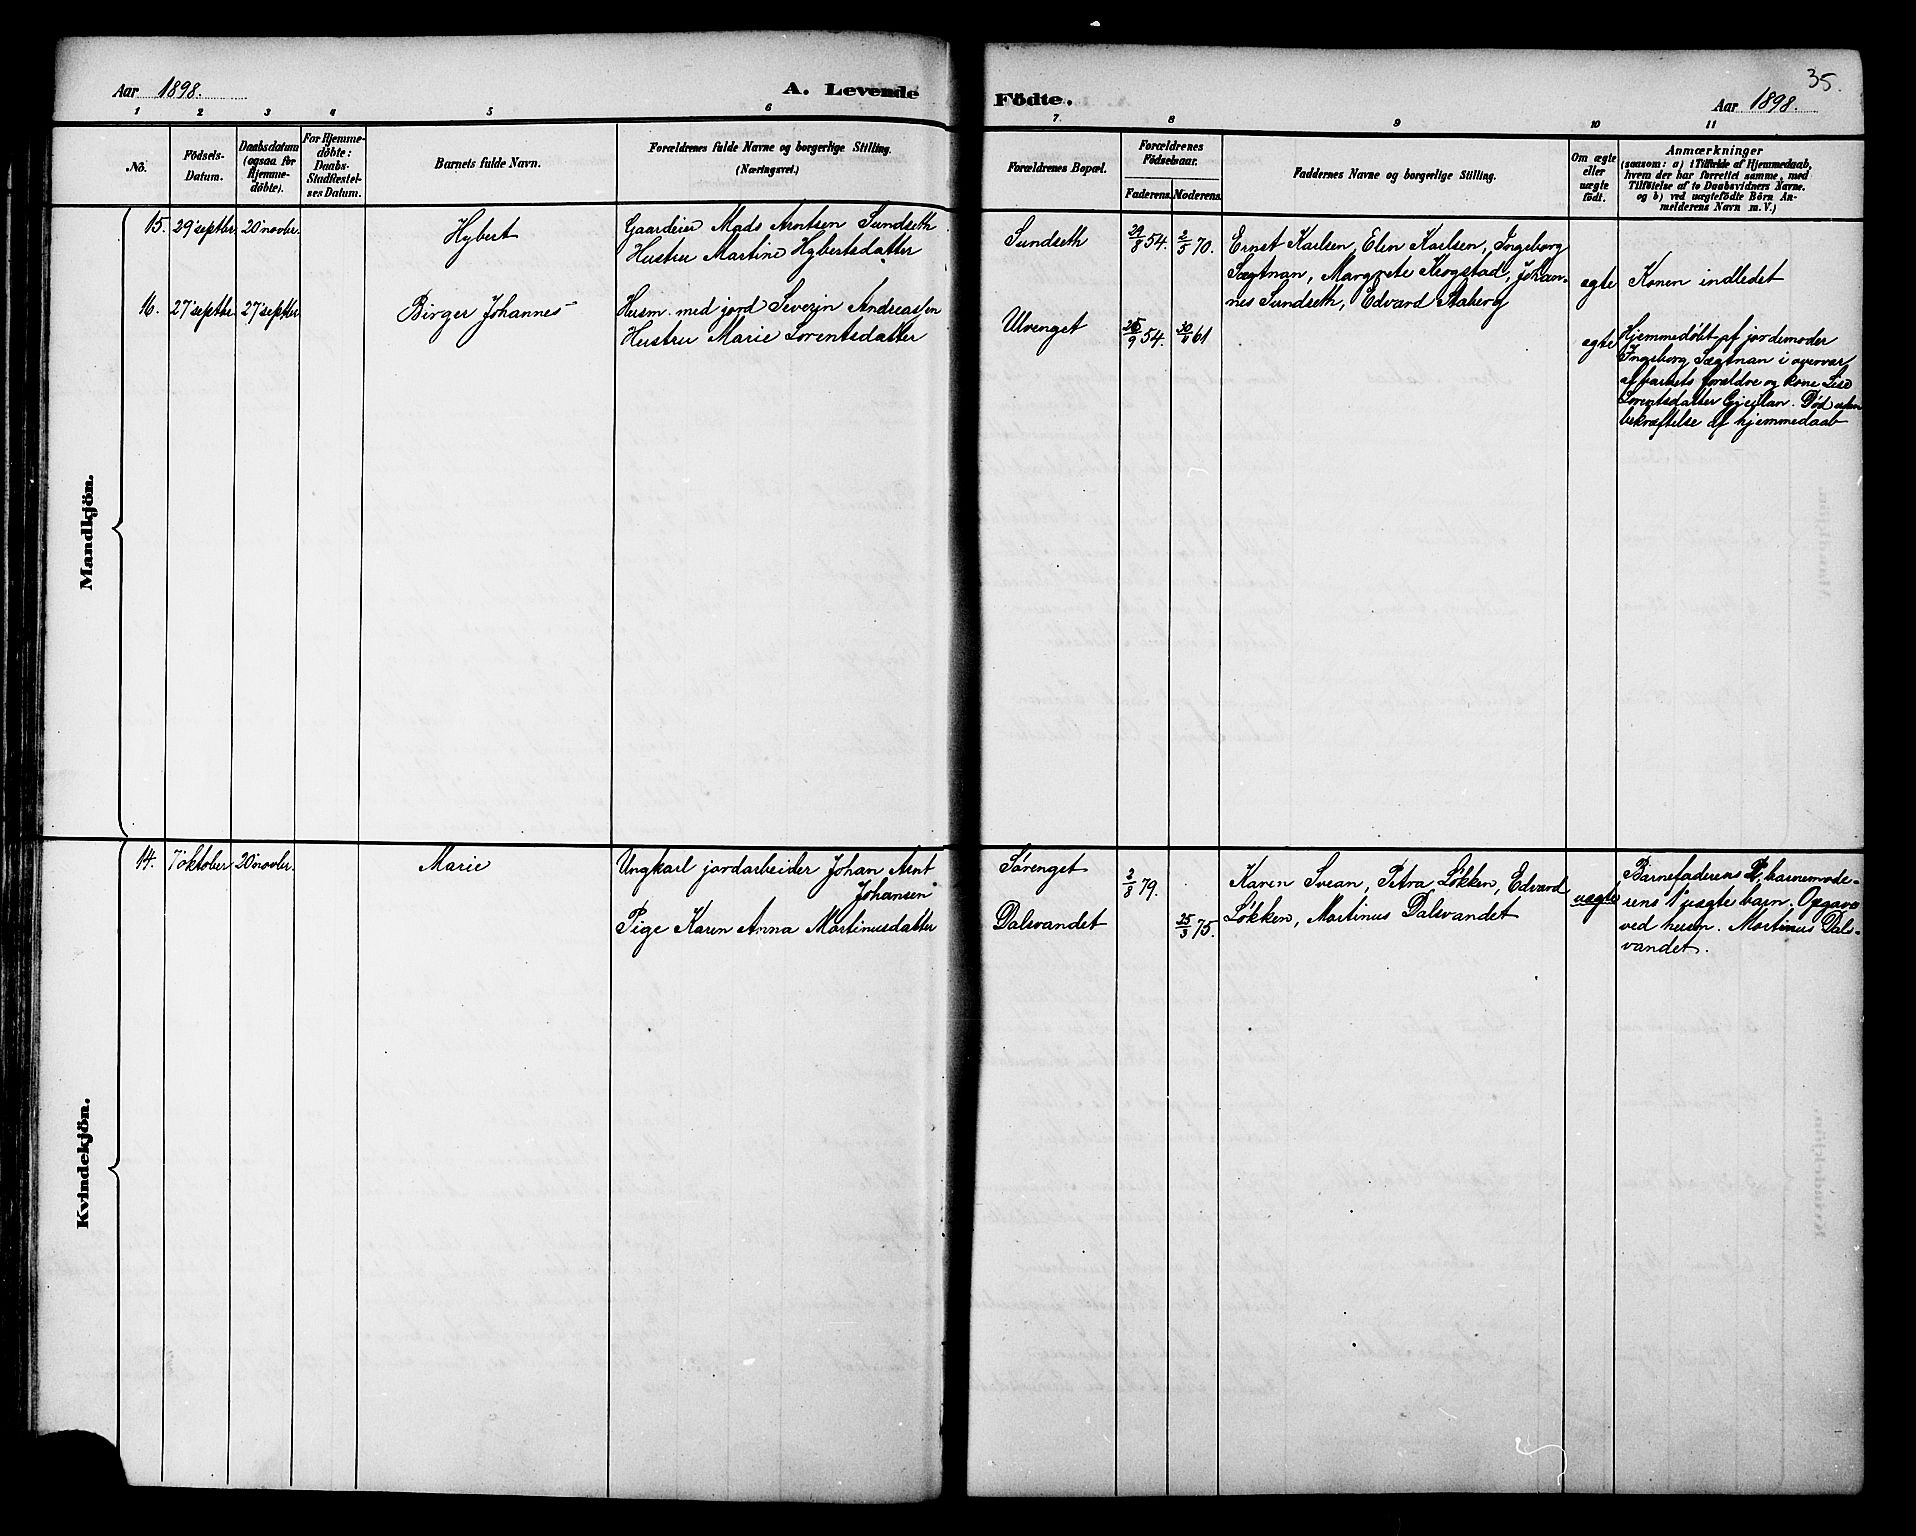 35.
Aar 1898.
A. Levende
Födte.
Aar 1898.
1 2 3 4 5 6 7. 8 9 10 11
No.
Födsels-
Datum.
Daabsdatum
(ogsaa for
Hjemme-
døbte).
For Hjemme-
döbte:
Daabs-
Stadfæstel-
ses Datum.
Barnets fulde Navn.
Forældrenes fulde Navne og borgerlige Stilling.
(Næringsvei.)
Forældrenes Bopæl.
Forældrenes
Födselsaar.
Faderens. Moderens.
Faddernes Navne og borgerlige Stilling.
Om ægte
eller
uægte
født.
Anmærkninger
(saasom: a) i Tilfælde af Hjemmedaab,
hvem der har forrettet samme, med
Tilføielse af to Daabsvidners Navne.
og b) ved uægtefödte Börn An-
melderens Navn m. V.)
Mandkjön.
15. 29 septbr 20 novbr.
Hybert
Gaardeier Mads Arntsen Sundseth
Hustru Martine Hybertsdatter
Sundseth
29/8 54. 2/5 70.
Ernst Karlsen, Elen Karlsen, Ingeborg
Sægtnan, Margrete Krogstad, Johan-
nes Sundseth, Edvard Staberg
egte
Konen indledet
16. 27 septbr 27 septbr
Birger Johannes
Husm. med jord Severin Andreassen
Hustru Marie Lorentsdatter
Ulvenget
26/9 54. 61
egte
Hjemmedøbt af jordemoder
Ingeborg Sægtnan i overvær
af barnets forældre og kone
Lorentsdatter. Død uden
bekræftelse af hjemmedaab
Kvindekjön.
14. 7 oktober 20 novbr.
Marie
Ungkarl jordarbeider Johan Arnt
Johansen
Pige Karen Anna Martinusdatter
Sørenget
Dalsvandet
2/8 79.
25/3 75.
Karen Svean, Petra Løkken, Edvard
Løkken, Martinus Dalsvandet
uegte
Barnefaderens 2, barnemode-
rens 1 uegte barn. Opgave
ved husm. Martinus Dals-
vandet.